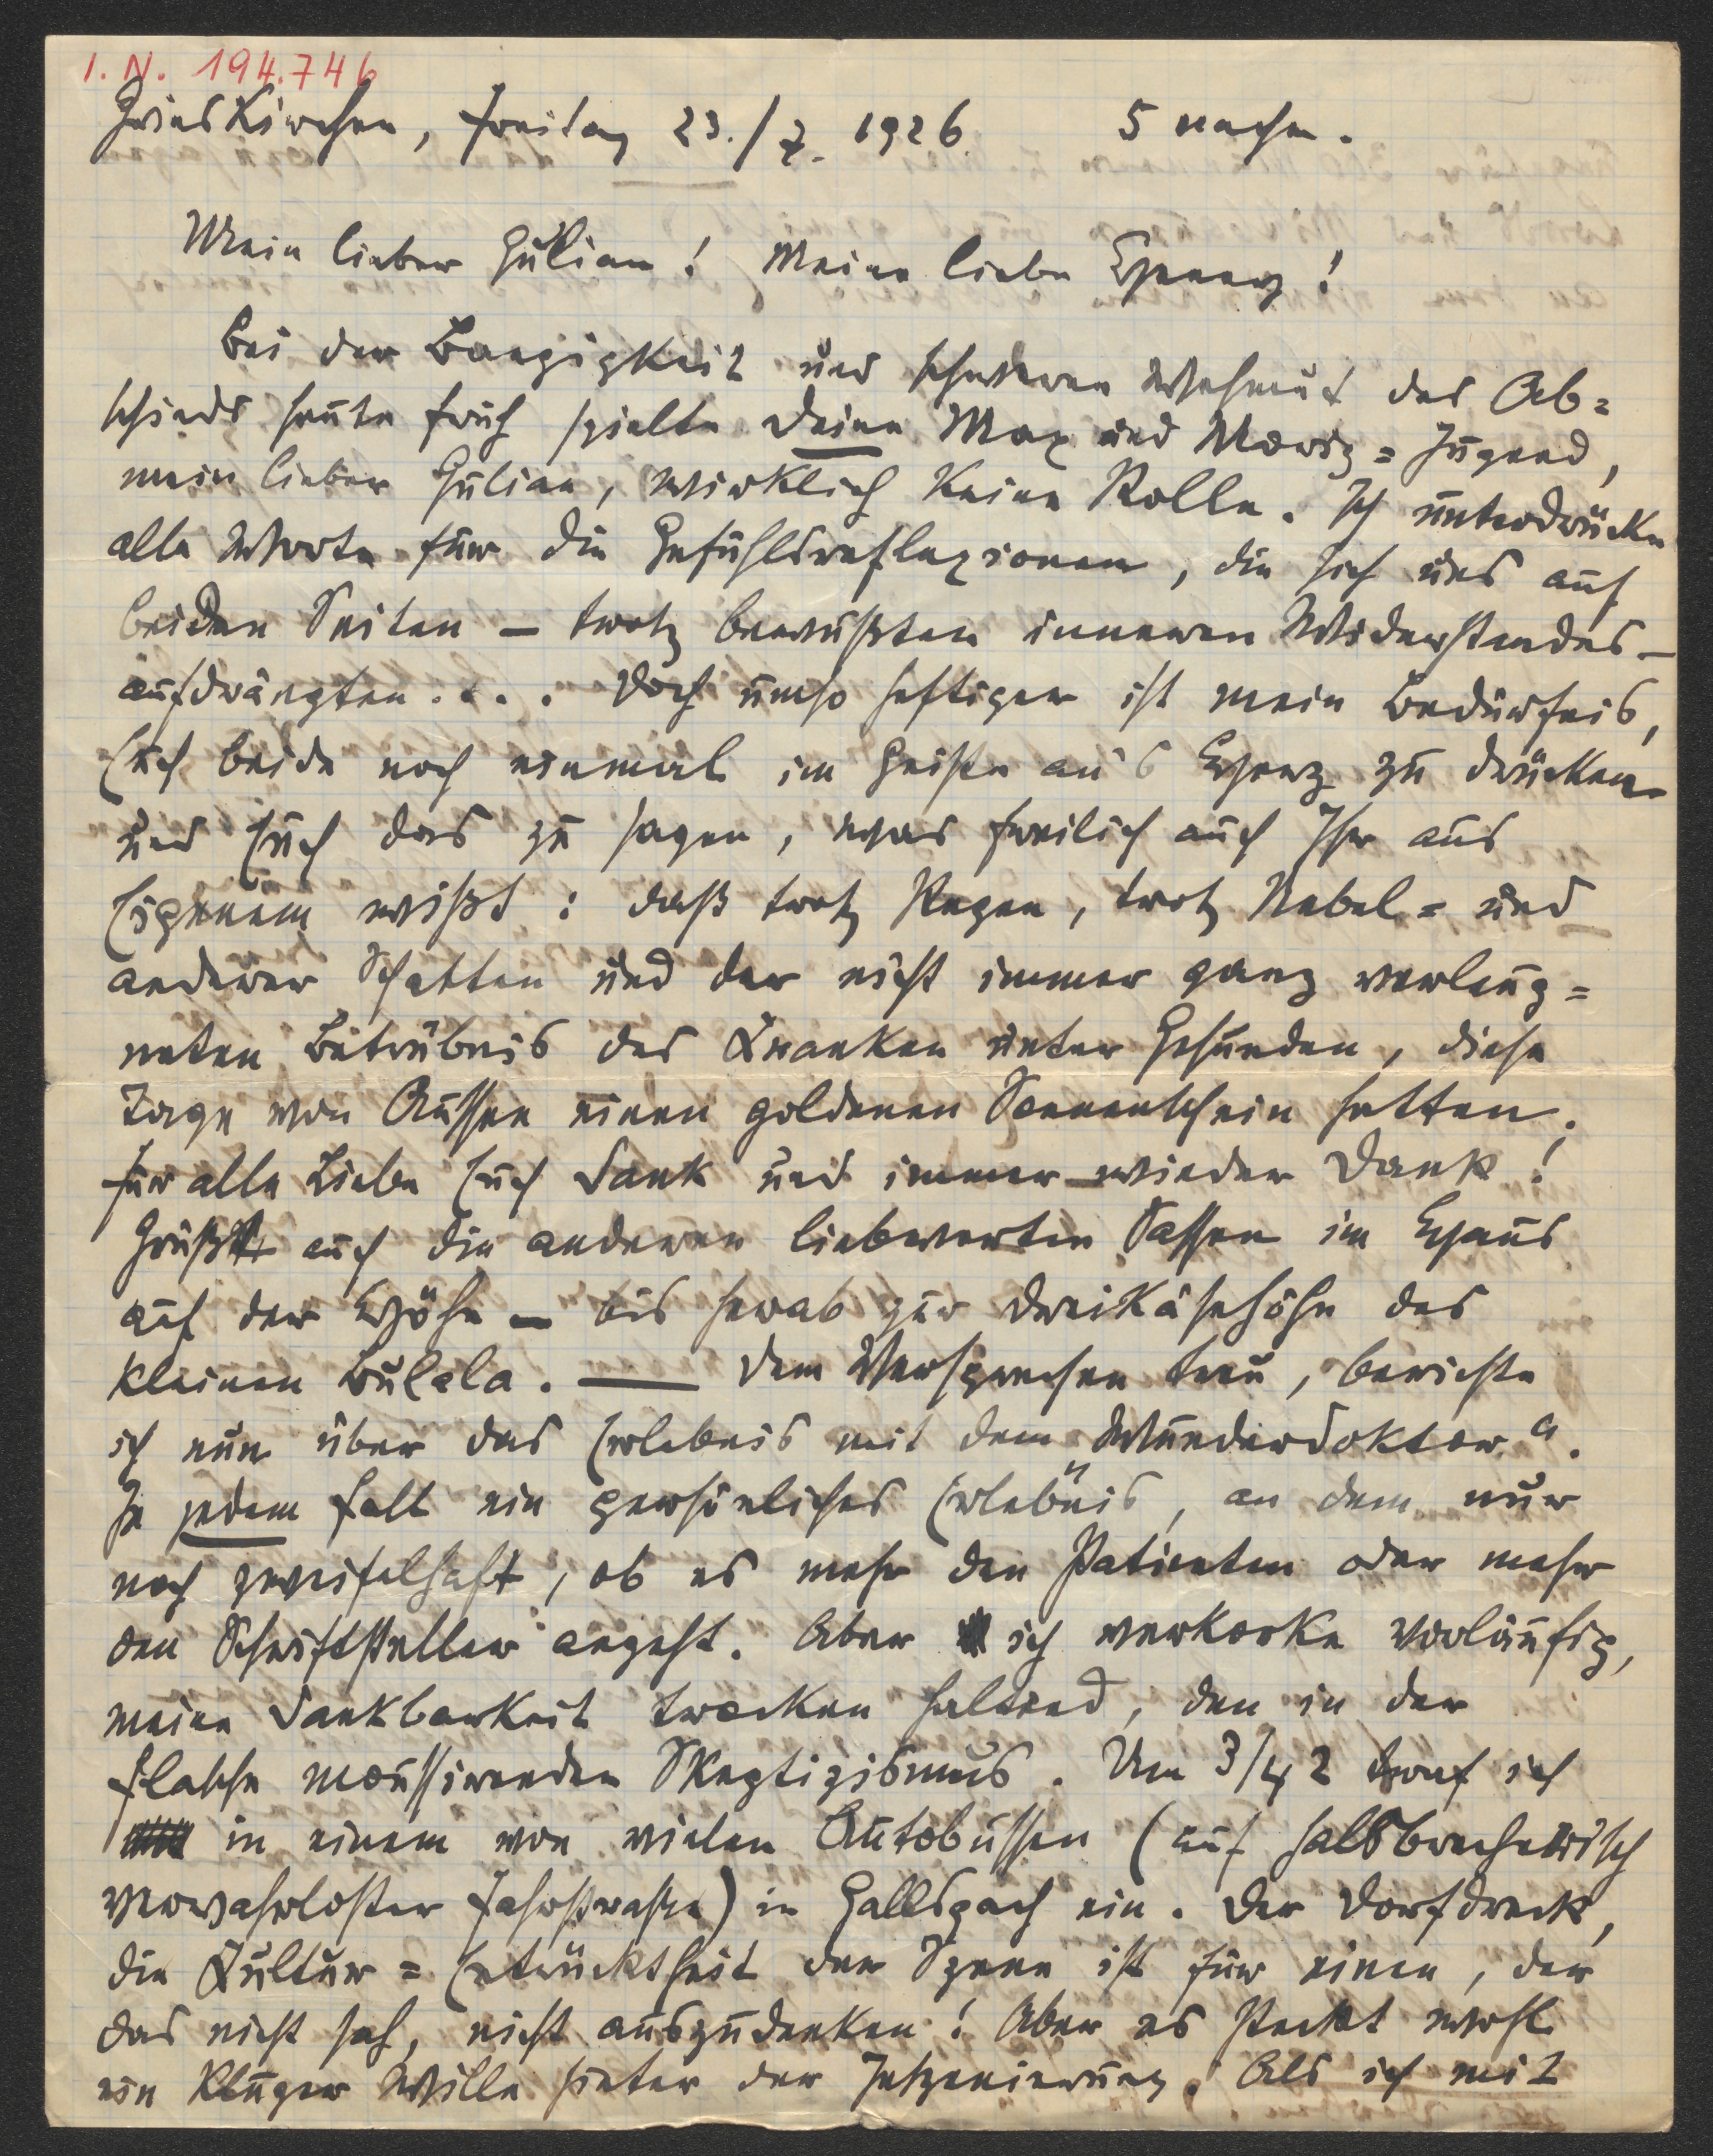 I. N. 194.746
Grieskirchen, Freitag 23./7. 1926. 5 nachm.
Mein lieber Julian! Meine liebe !
Bei der Bangigkeit und schweren Wehmut des Ab=
schieds heute früh spielte Deine Max und Moriz=Jugend,
mein lieber Julian, wirklich keine Rolle. Ich unterdrücke
alle Worte für die Gefühlsreflexionen, die sich uns auf
beiden Seiten – trotz bewußten inneren Widerstandes –
aufdrängten.... Doch umso heftiger ist mein Bedürfnis,
Euch beide noch einmal im Geiste an's Herz zu drücken
und Euch das zu sagen, was freilich auch Ihr aus
Eigenem wißt: daß trotz Regen, trotz Nebel= und
anderer Schatten und der nicht immer ganz verleug=
neten Betrübnis des Kranken unter Gesunden, diese
Tage von Aussee einen goldenen Sonnenschein hatten.
Für alle Liebe Euch Dank und immer wieder Dank!
Grüßt auch die anderen liebwerten Sassen im Haus
auf der Höhe – bis herab zur Dreikäsehöhe des
kleinen Bulala. — Dem Versprechen treu, berichte
ich nun über das Erlebnis mit dem „Wunderdoktor".
In jedem Fall ein persönliches Erlebnis, an dem nur
noch zweifelhaft, ob es mehr den Patienten oder mehr
den Schriftsteller angeht. Aber ich verkorke vorläufig,
meine Dankbarkeit trocken haltend, den in der
Flasche moussirenden Skeptizismus. Um 3/4 2 traf ich
in einem von vielen Autobussen (auf halsbrecherisch
verwahrloster Fahrstraße) in Gallspach ein. Der Dorfdreck,
die Kultur=Entrücktheit der Szene ist für einen, der
das nicht sah, nicht auszudenken! Aber es steckt wohl
ein kluger Wille hinter der Inszenierung. Als ich mit